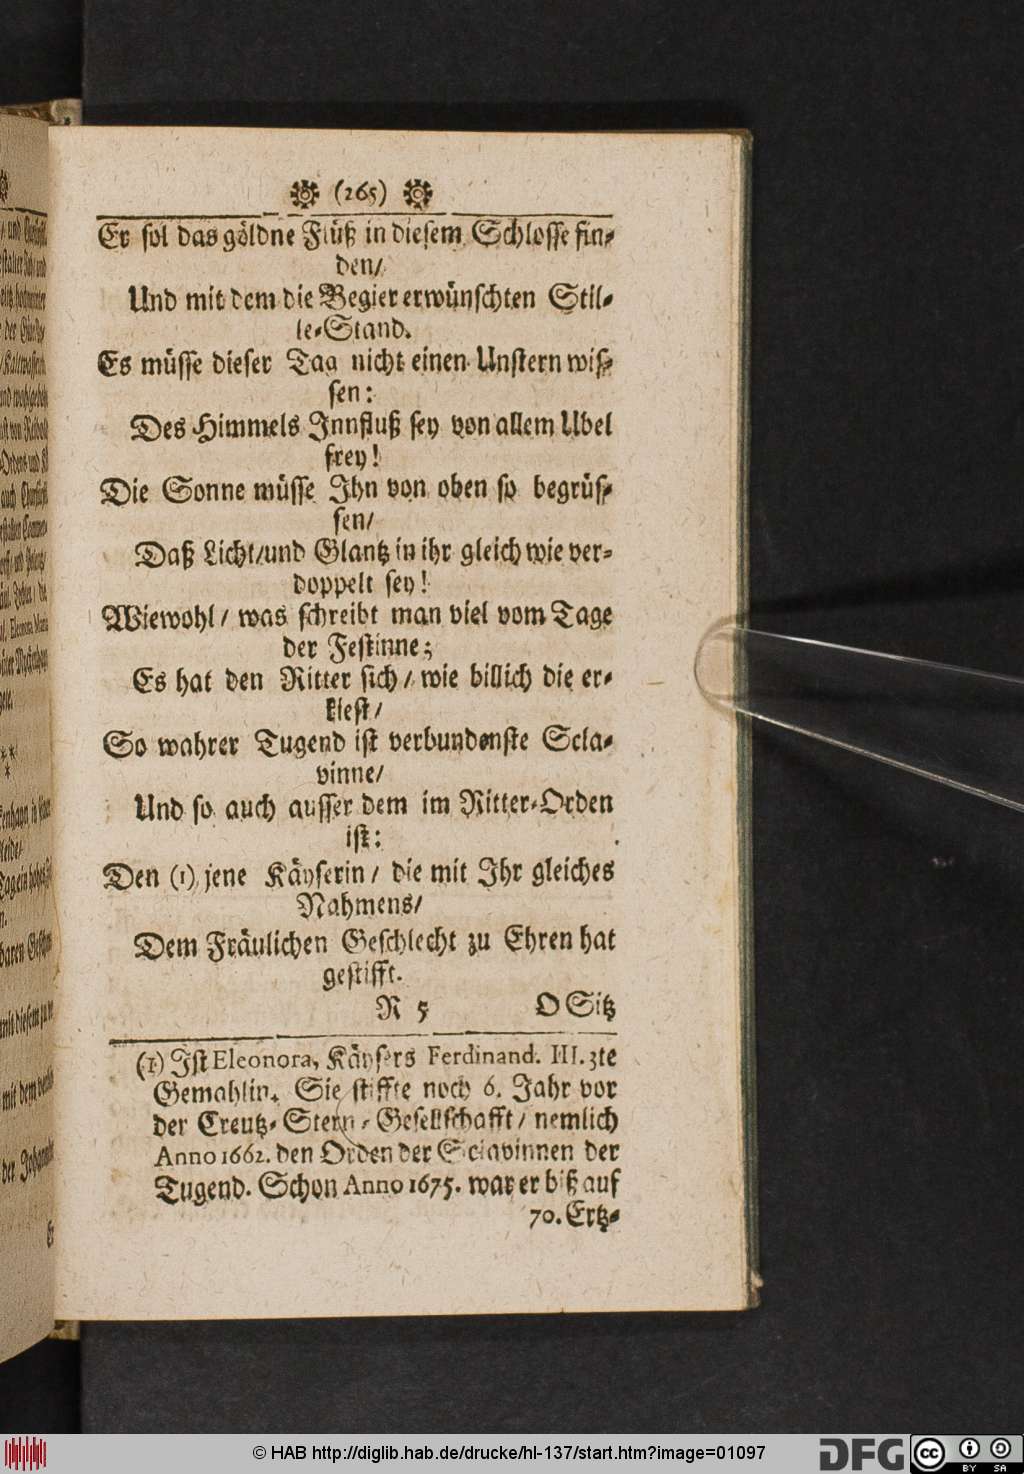 (265)
Er sol das göldne Flüß in diesem Schlosse fin-
den/
Und mit dem die Begier erwünschten Stil-
le-Stand.
Es müsse dieser Tag nicht einen Unstern wis-
sen:
Des Himmels Innfluß sey von allem Ubel
frey!
Die Sonne müsse Ihn von oben so begrüs-
sen/
Daß Licht/und Glantz in ihr gleich wie ver-
doppelt sey!
Wiewohl/ was schreibt man viel vom Tage
der Festinne;
Es hat den Ritter sich/ wie billich die er-
kiest/
So wahrer Tugend ist verbundenste Scla-
vinne/
Und so auch ausser dem im Ritter-Orden
ist:
Den (1) jene Käyserin/ die mit Ihr gleiches
Nahmens/
Dem Fräulichen Geschlecht zu Ehren hat
gestifft.
R 5 O Sitz
(1) Ist Eleonora, Käysers Ferdinand. III. 3te
Gemahlin. Sie stiffte noch 6. Jahr vor
der Creutz-Stern-Gesellschafft/ nemlich
Anno 1662. den Orden der Sclavinnen der
Tugend. Schon Anno 1675. war er biß auf
70. Ertz-
© HAB http://diglib.hab.de/drucke/hl-137/start.htm?image=01097
DFG
cc
BY SA